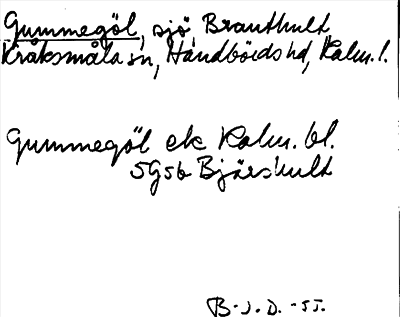 Gummegöl, sjö, Branthult
Kråksmåla sn, Handbörds hd, Kalm. l.
Gummegöl ek Kalm. bl.
5G5b Bjärshult
B.J.D. -55.